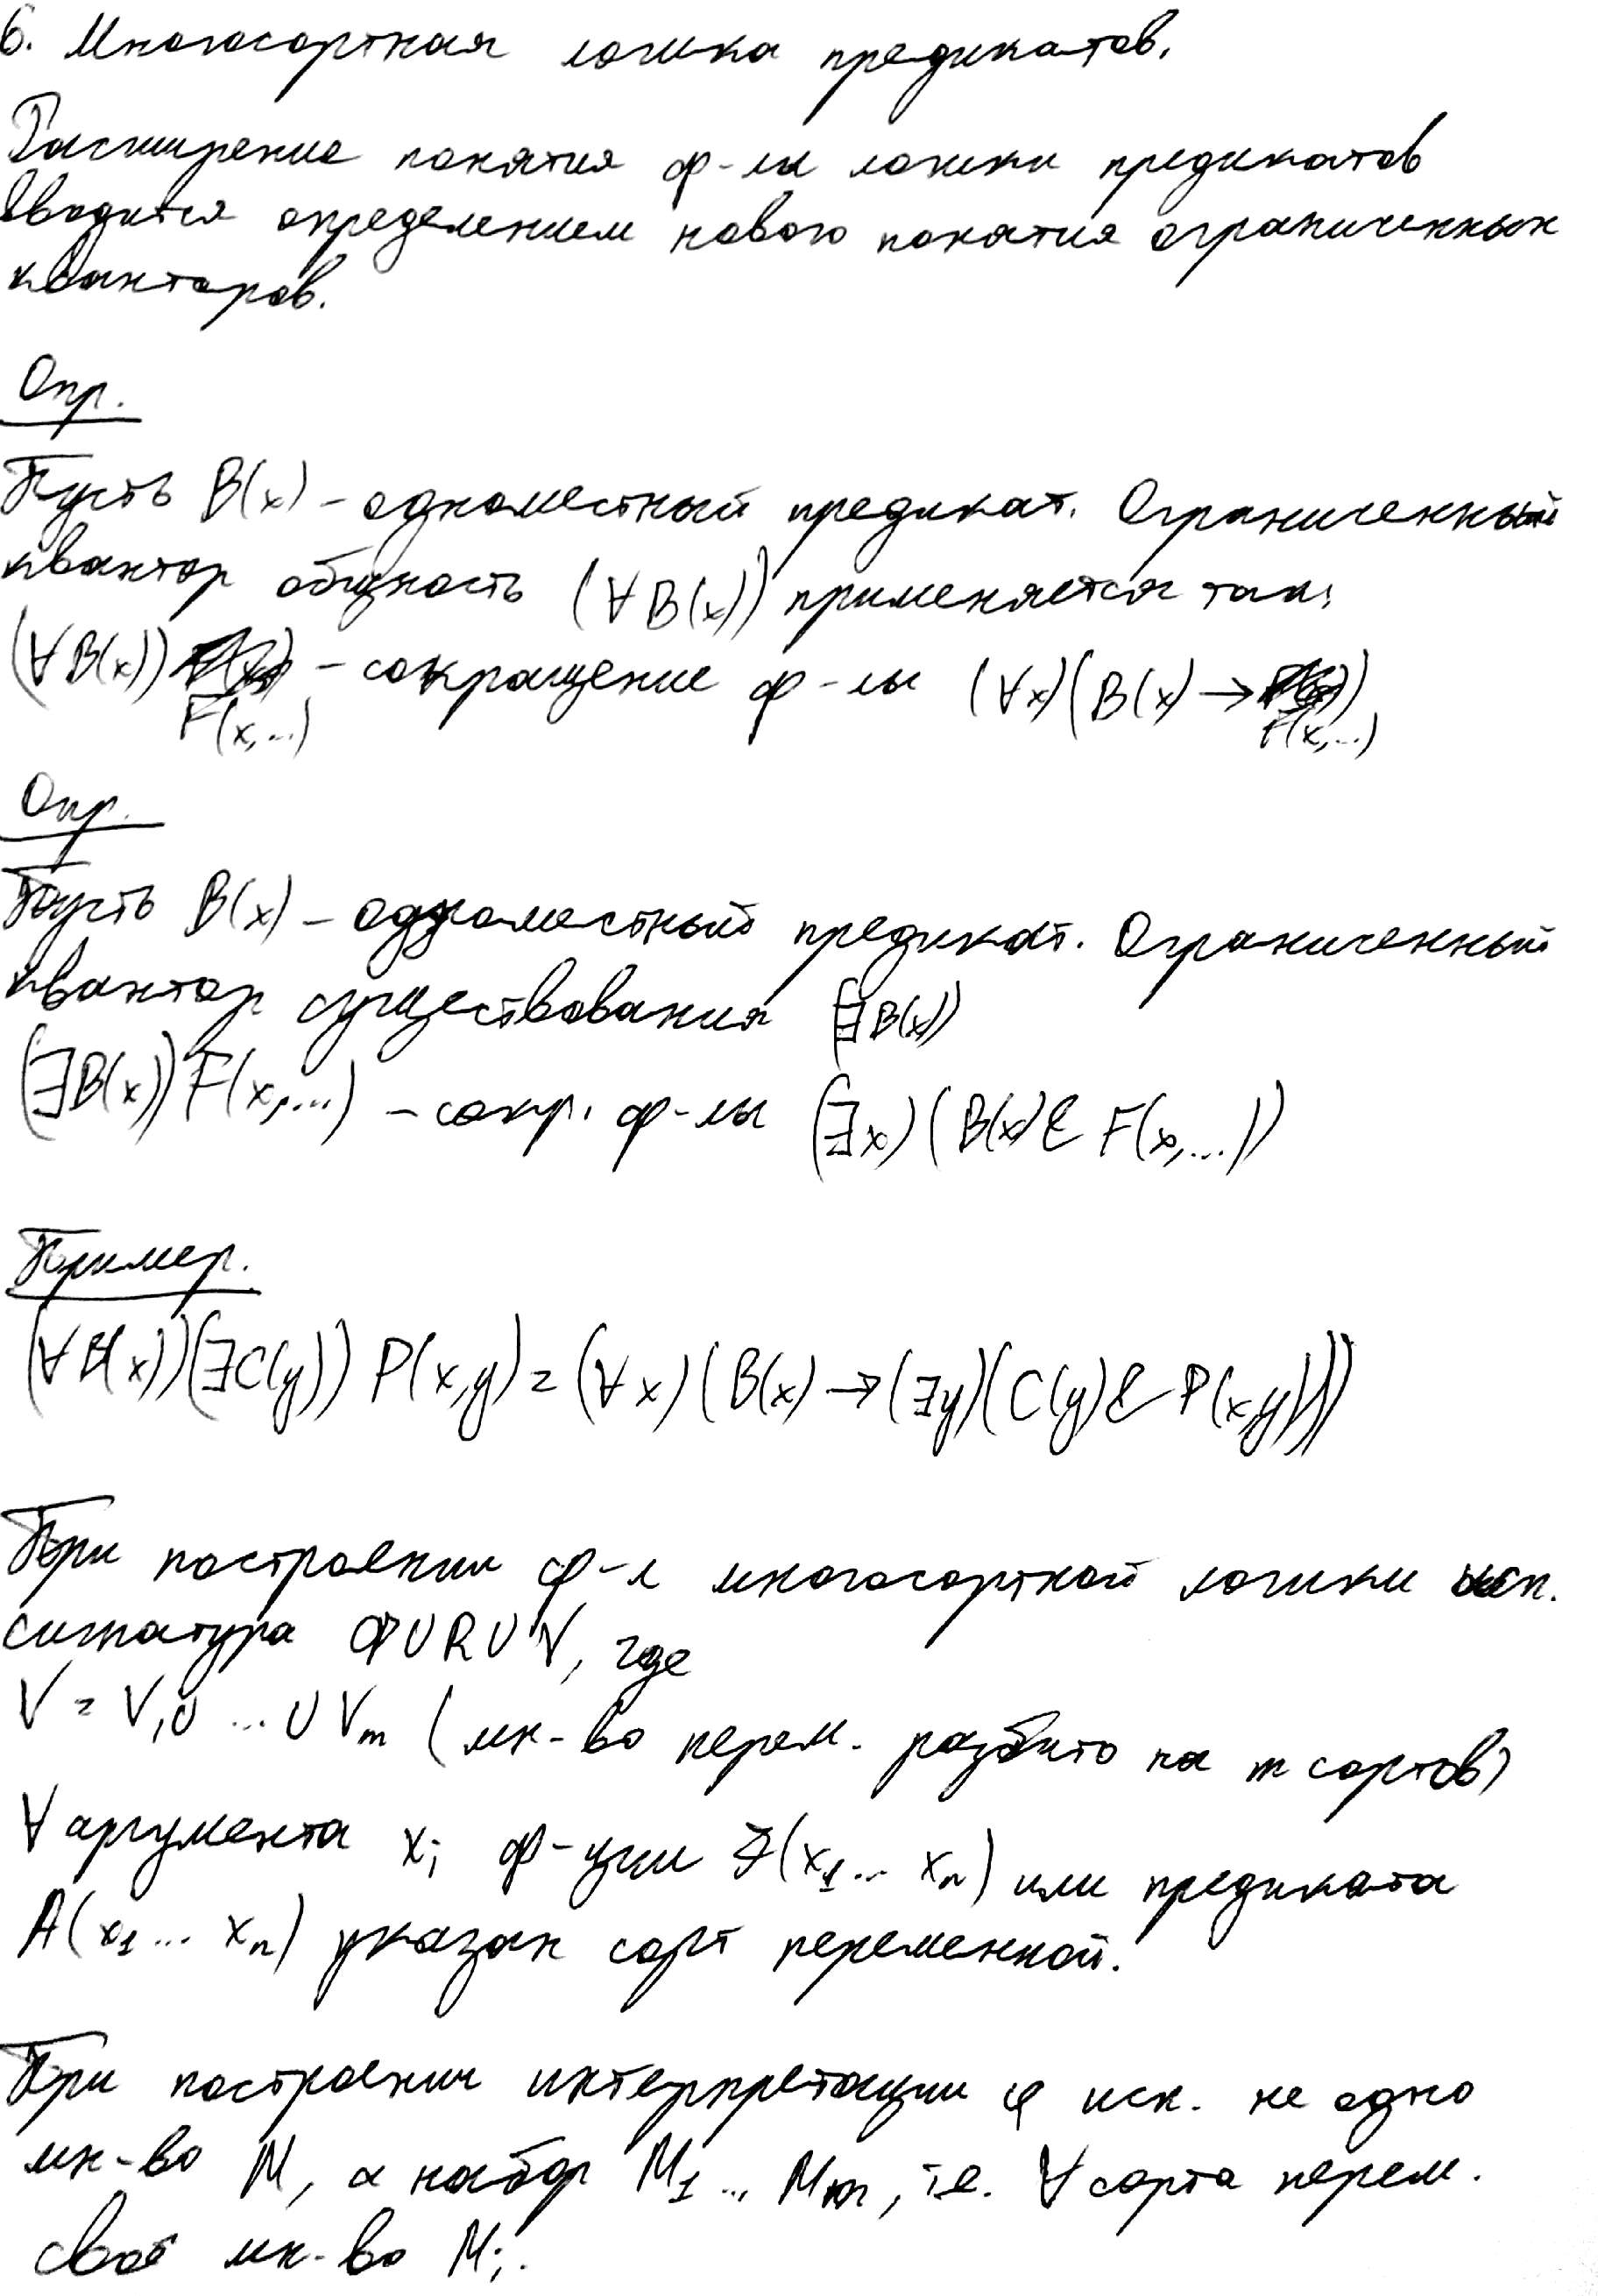 6. Многосортная логика предикатов.
Расширение понятия ф-лы логики предикатов
вводится определением нового понятия ограниченных
кванторов.
Опр.
Пусть B(x) – одноместный предикат. Ограниченный
квантор общность (∀B(x)) применяется так:
(∀B(x)) F(x,...) – сокращение ф-лы (∀x)(B(x) → F(x,...))
Опр.
Пусть B(x) – одноместный предикат. Ограниченный
квантор существования (∃B(x))
(∃B(x)) F(x,...) – сокр. ф-лы (∃x)(B(x) & F(x,...))
Пример.
(∀B(x))(∃C(y)) P(x,y) = (∀x)(B(x) → (∃y)(C(y) & P(x,y)))
При построении ф-л многосортной логики исп.
сигнатура Ф∪R∪V, где
V = V₁∪ ... ∪Vm (мн-во перем. разбито на m сортов)
∀ аргумента xᵢ ф-ции F(x₁... xₙ) или предиката
A(x₁... xₙ) указан сорт переменной.
При построении интерпретации φ исп. не одно
мн-во M, а набор M₁ ... Mm, т.е. ∀ сорта перем.
своё мн-во Mᵢ.